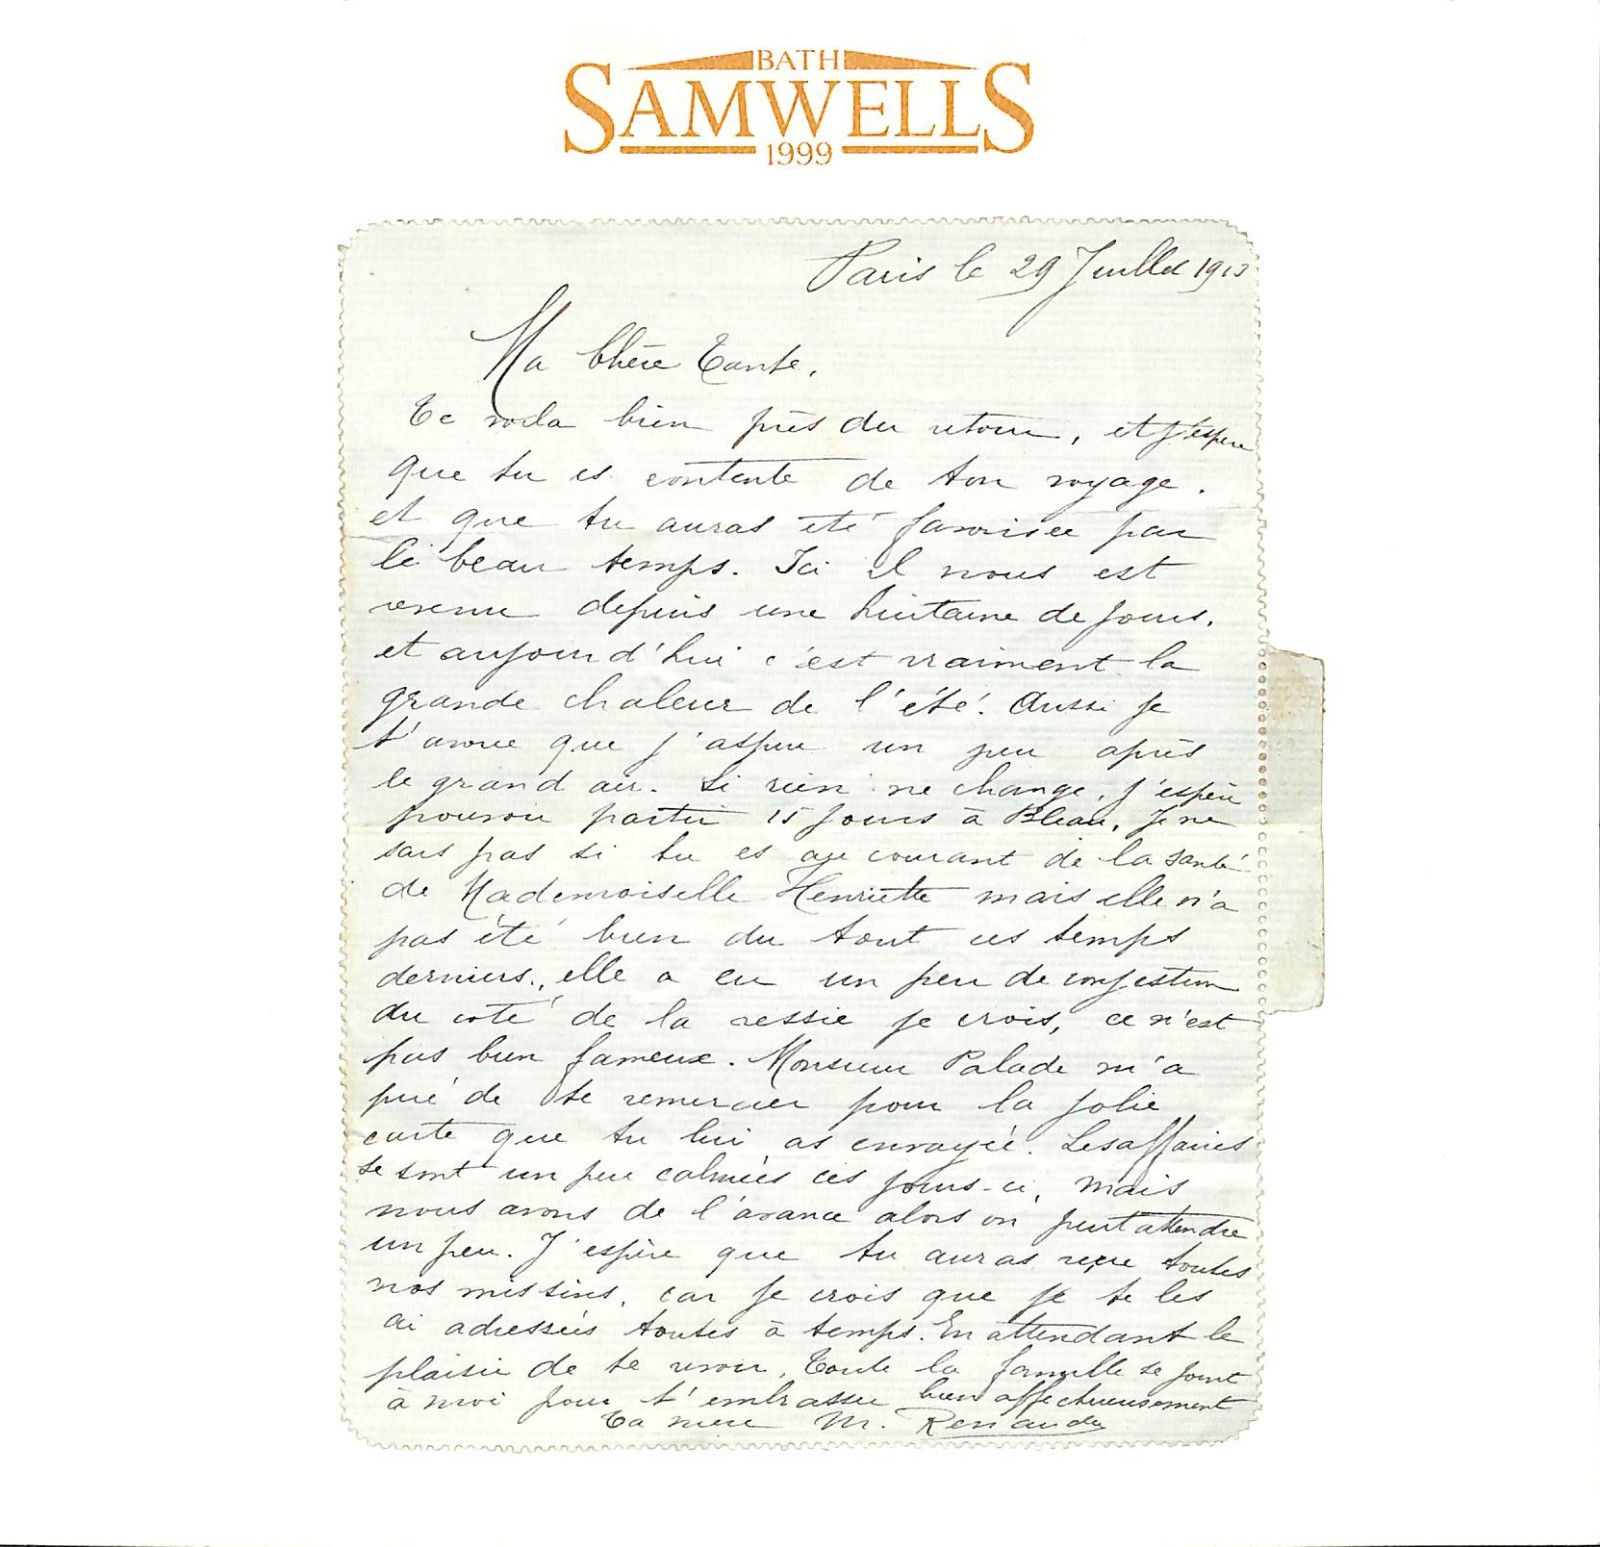 BATH
SAMWELLS
1999
Paris le 29 Juillet 1913
Ma Chère Tante,
Te voila bien près du retour, et j'espère
que tu es contente de ton voyage.
et que tu auras été favorisée par
le beau temps. Ici il nous est
revenu depuis une huitaine de jours,
et aujourd'hui c'est vraiment la
grande chaleur de l'été. Aussi je
t'avoue que j'aspire un peu après
le grand air. Si rien ne change, j'espère
pouvoir partir 15 jours à Bleau, Je ne
sais pas si tu es au courant de la santé
de Mademoiselle Henriette mais elle n'a
pas été bien du tout ces temps
derniers., elle a eu un peu de congestion
du coté de la vessie je crois, ce n'est
pas bien fameux. Monsieur Palade m'a
prié de te remercier pour la jolie
carte que tu lui as envoyée. Les affaires
se sont un peu calmées ces jours-ci, mais
nous avons de l'avance alors on peut attendre
un peu. J'espère que tu auras reçu toutes
nos missives, car je crois que je te les
ai adressées toutes à temps. En attendant le
plaisir de te revoir, Toute la famille se joint
à moi pour t'embrasser bien affectueusement
Ta nièce M.